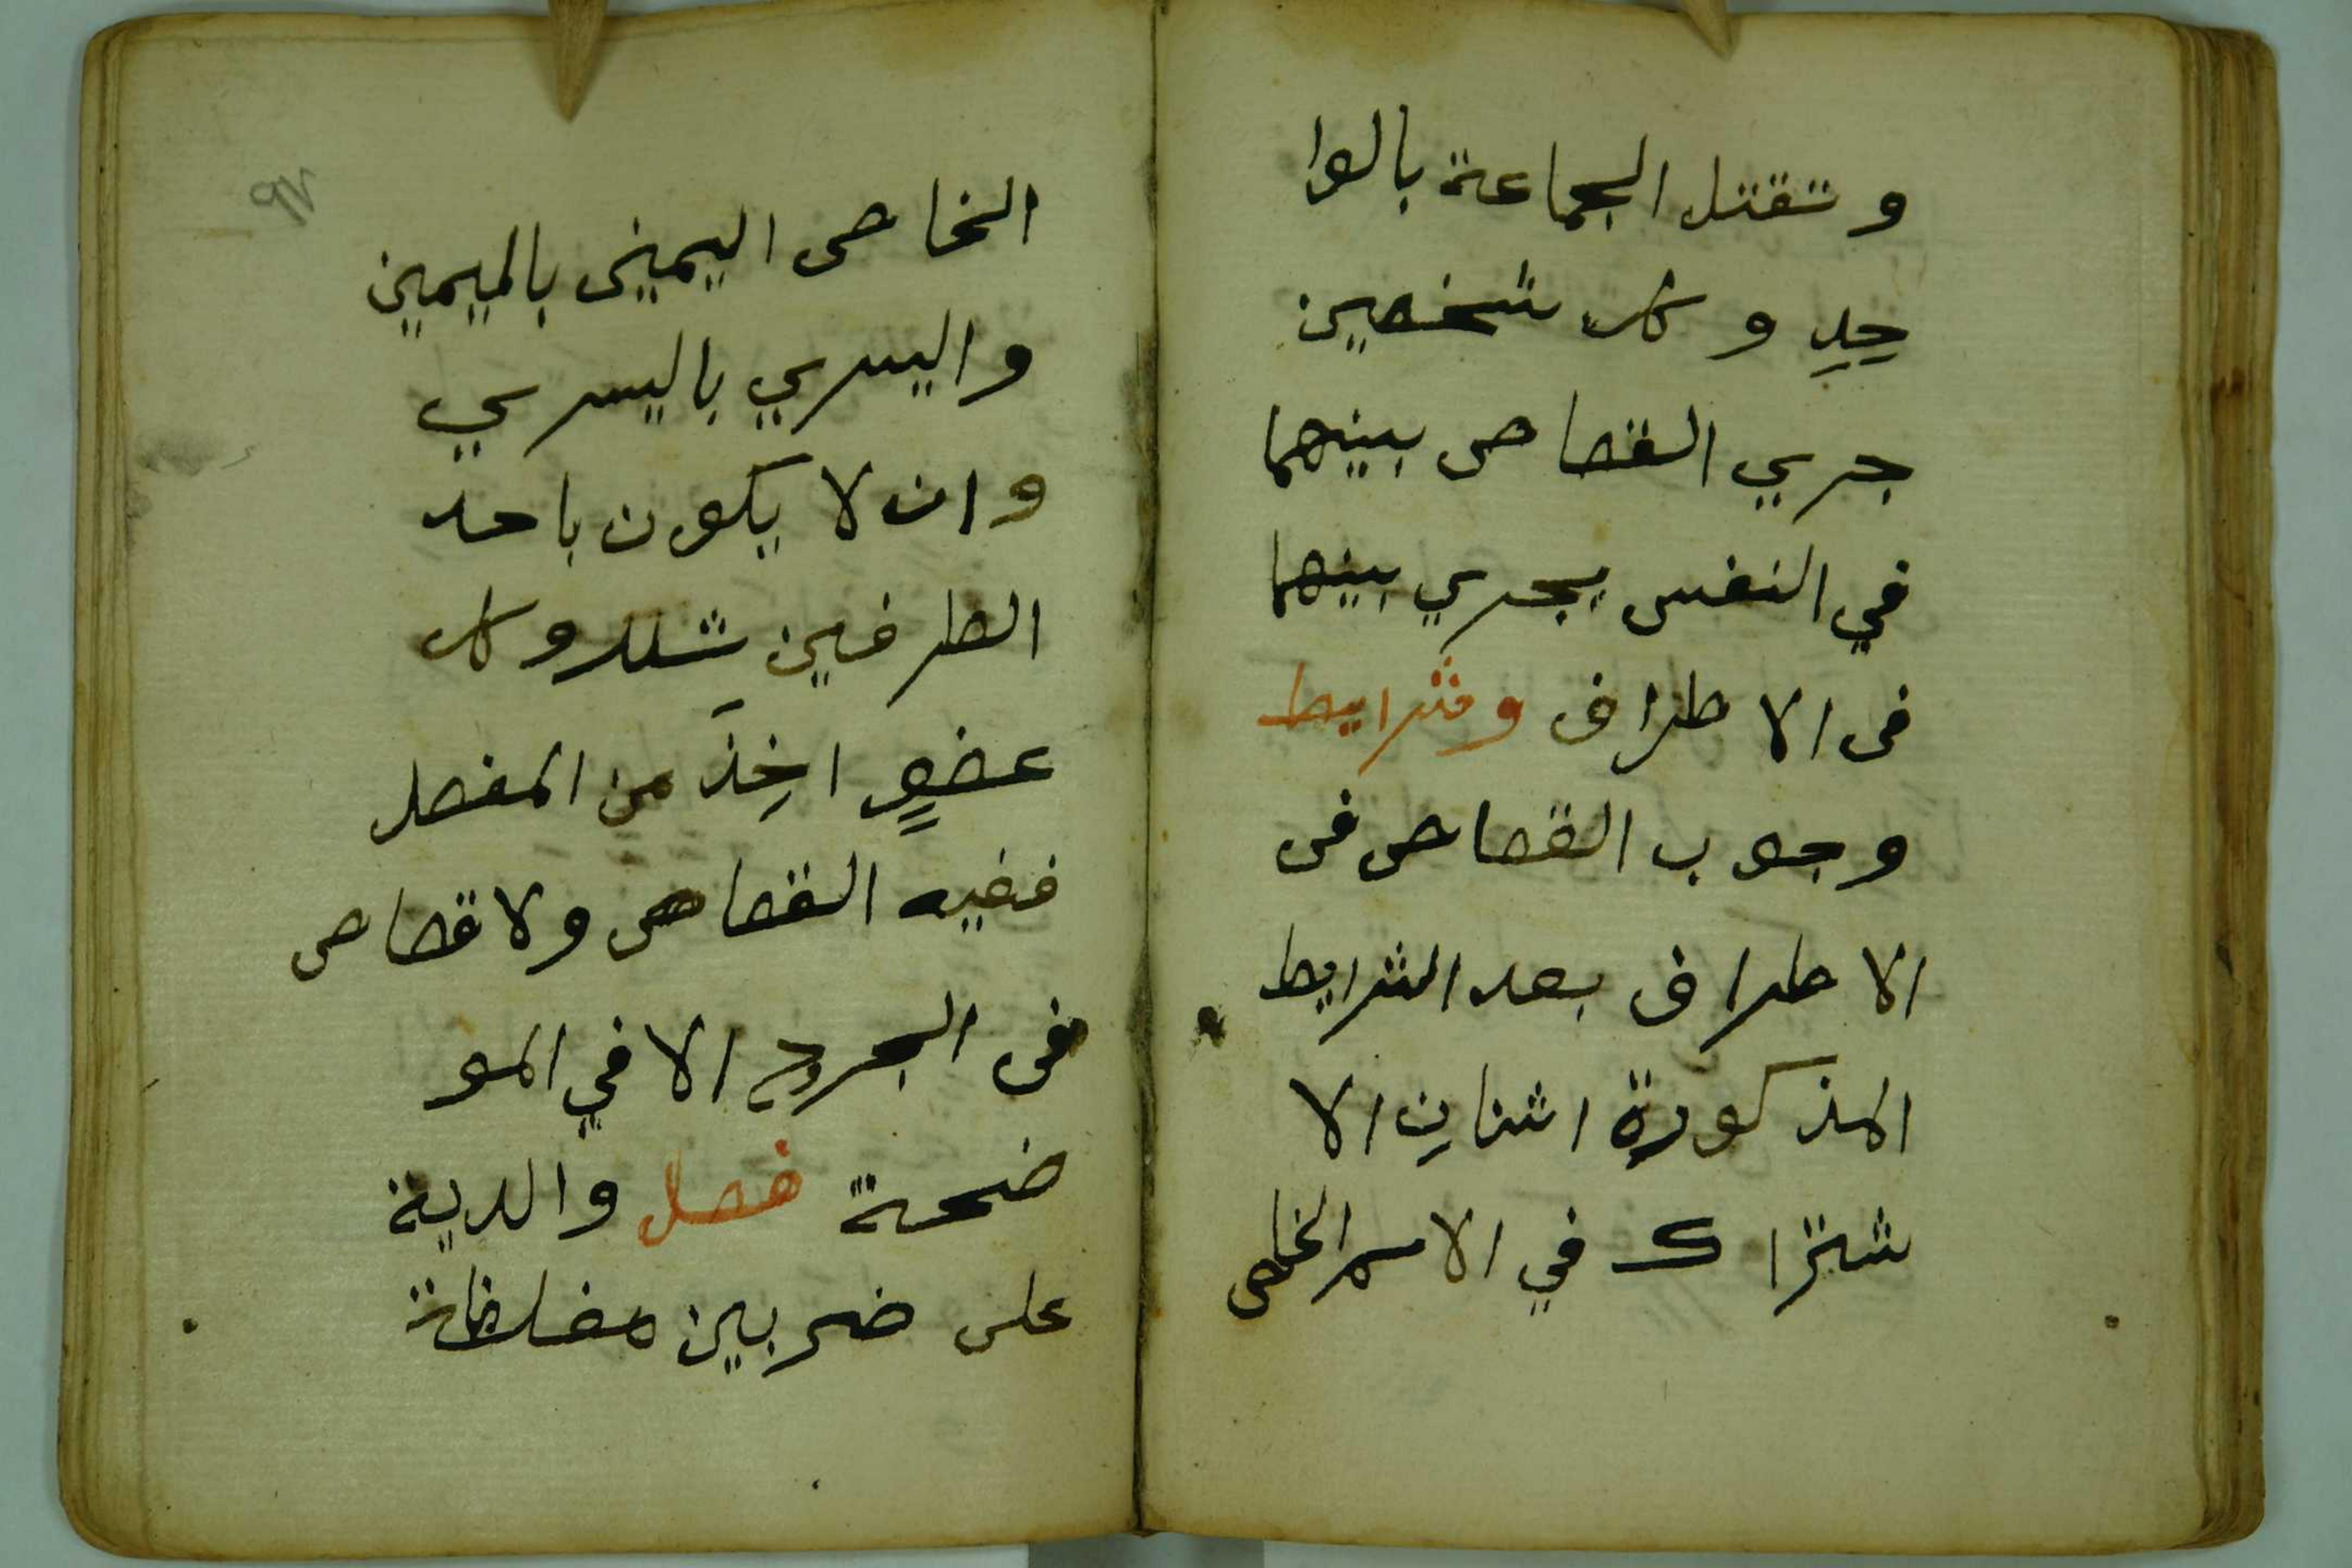 وتقتل الجماعة بالوا
حِدِ وكل شخصين
جري القصاص بينهما
في النفس يجري بينهما
فى الاطراف وشرايط
وجوب القصاص فى
الاطراف بعد الشرايط
المذكورة اثنانِ الا
شتراك في الاسم الخاص
٩٧
الخاص اليمينى بالميمين
واليسري باليسري
وان لا يكون باحد
الطرفين شلل وكل
عضوٍ اخِذَ من المفصل
ففيه القصاص ولا قصاص
فى الجروح الا في المو
ضحة فصل والدية
على ضربين مغلظة